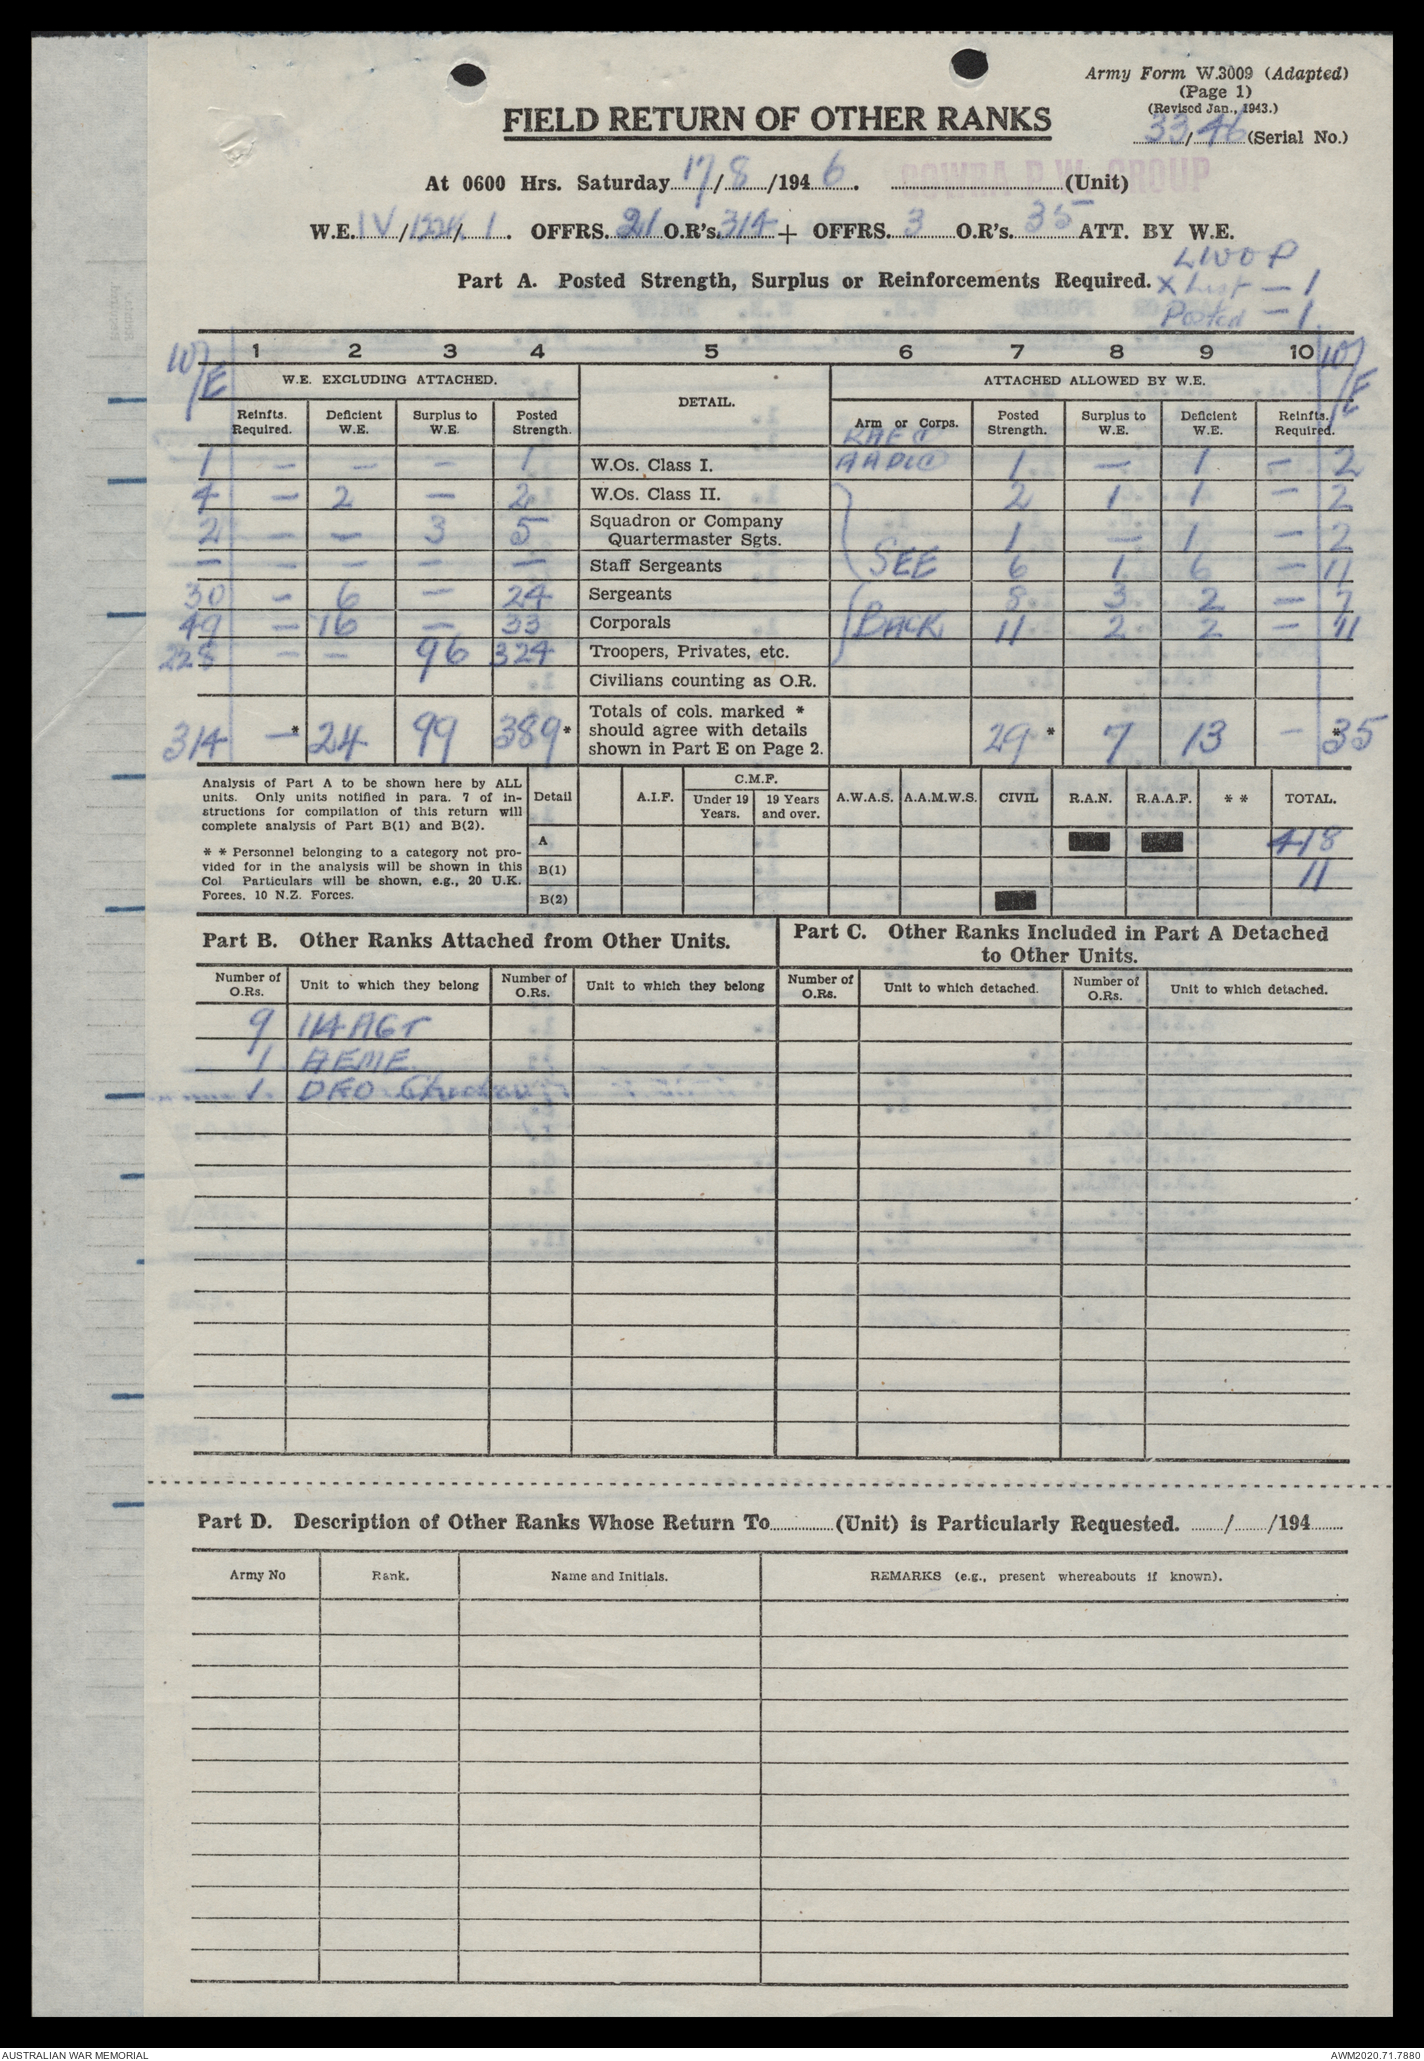 Army Form W.3009 (Adapted)
(Page 1)
(Revised Jan., 1943.)
FIELD RETURN OF OTHER RANKS
33/46 (Serial No.)
COWRA P.W. GROUP
At 0600 Hrs. Saturday 17/8/1946. (Unit)
W.E. IV / / 1. OFFRS. 21 O.R's. 314 + OFFRS. 3 O.R's. 35 ATT. BY W.E.
LWOP
Part A. Posted Strength, Surplus or Reinforcements Required. X List — 1
Posted — 1
W/E 1 2 3 4 5 6 7 8 9 10 W/E
W.E. EXCLUDING ATTACHED. DETAIL. ATTACHED ALLOWED BY W.E.
Reinfts. Required. Deficient W.E. Surplus to W.E. Posted Strength. Arm or Corps. Posted Strength. Surplus to W.E. Deficient W.E. Reinfts. Required.
1 — — — 1 W.Os. Class I. 1 — 1 — 2
4 — 2 — 2 W.Os. Class II. 2 1 1 — 2
2 — — 3 5 Squadron or Company Quartermaster Sgts. 1 — 1 — 2
— — — — — Staff Sergeants SEE 6 1 6 — 11
30 — 6 — 24 Sergeants 8 3 2 — 7
49 — 16 — 33 Corporals BACK 11 2 2 — 11
228 — — 96 324 Troopers, Privates, etc.
Civilians counting as O.R.
314 — * 24 99 389 * Totals of cols. marked * should agree with details shown in Part E on Page 2. 29 * 7 13 — * 35
Analysis of Part A to be shown here by ALL
units. Only units notified in para. 7 of in-
structions for compilation of this return will
complete analysis of Part B(1) and B(2).
* * Personnel belonging to a category not pro-
vided for in the analysis will be shown in this
Col. Particulars will be shown, e.g., 20 U.K.
Forces, 10 N.Z. Forces.
Detail A.I.F. C.M.F. Under 19 Years. 19 Years and over. A.W.A.S. A.A.M.W.S. CIVIL R.A.N. R.A.A.F. * * TOTAL.
A 418
B(1) 11
B(2)
Part B. Other Ranks Attached from Other Units.
Part C. Other Ranks Included in Part A Detached
to Other Units.
Number of O.Rs. Unit to which they belong Number of O.Rs. Unit to which they belong Number of O.Rs. Unit to which detached. Number of O.Rs. Unit to which detached.
9 114 AGT
1 AEME
1 DFO
Part D. Description of Other Ranks Whose Return To (Unit) is Particularly Requested. / /194
Army No Rank. Name and Initials. REMARKS (e.g., present whereabouts if known).
AUSTRALIAN WAR MEMORIAL AWM2020.71.7880